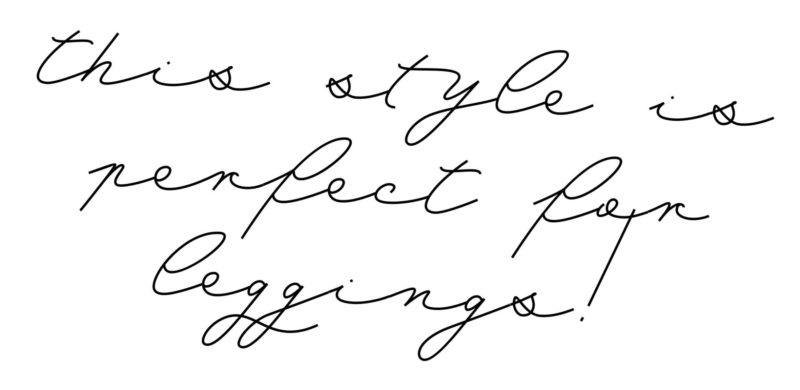 this style is
perfect for
leggings!